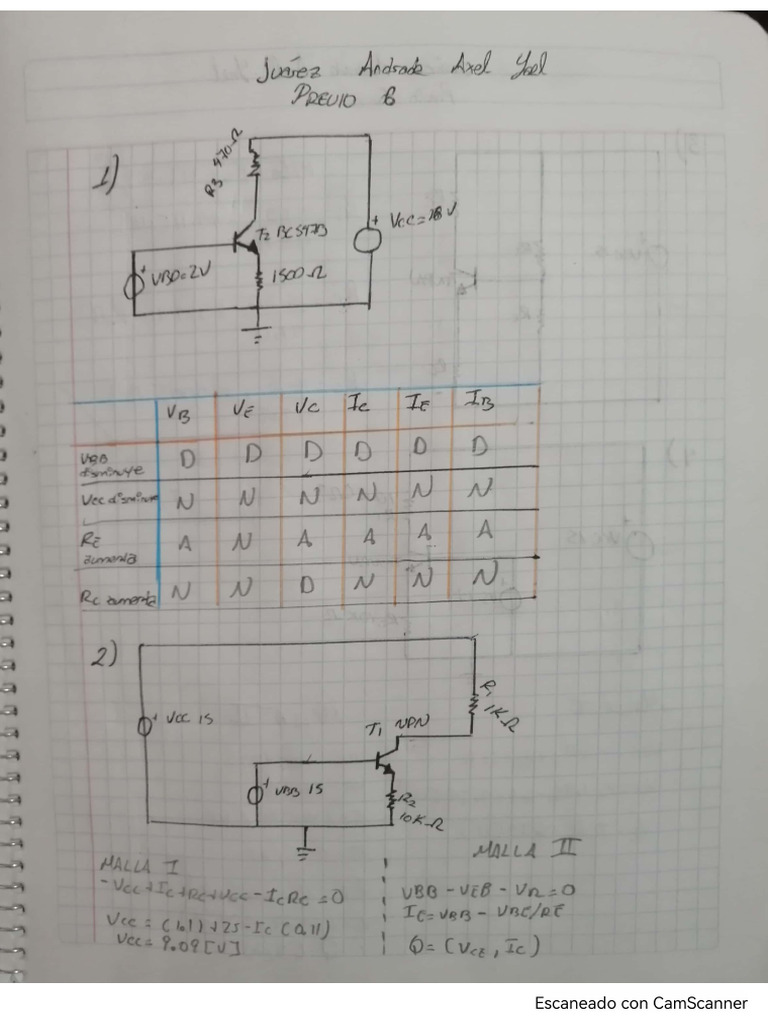 Juárez Andrade Axel Yael
PREVIO 6
1)
R3 470Ω
T2 BC547B
Vcc=18V
VBD=2V
1500Ω
VB VE VC IC IE IB
VBB disminuye D D D D D D
Vcc disminuye N N N N N N
RE aumenta A N A A A A
Rc aumenta N N D N N N
2)
R1 1KΩ
VCC 15
T1 NPN
VBB 15
R2 10KΩ
MALLA I
-Vcc+Ic+Rc+Vcc-IcRc=0
Vcc=(1.1)+25-Ic(0.11)
Vcc=9.09[V]
MALLA II
VBB-VEB-VR=0
IC=VBB-VBE/RE
Q=(VCE, Ic)
Escaneado con CamScanner